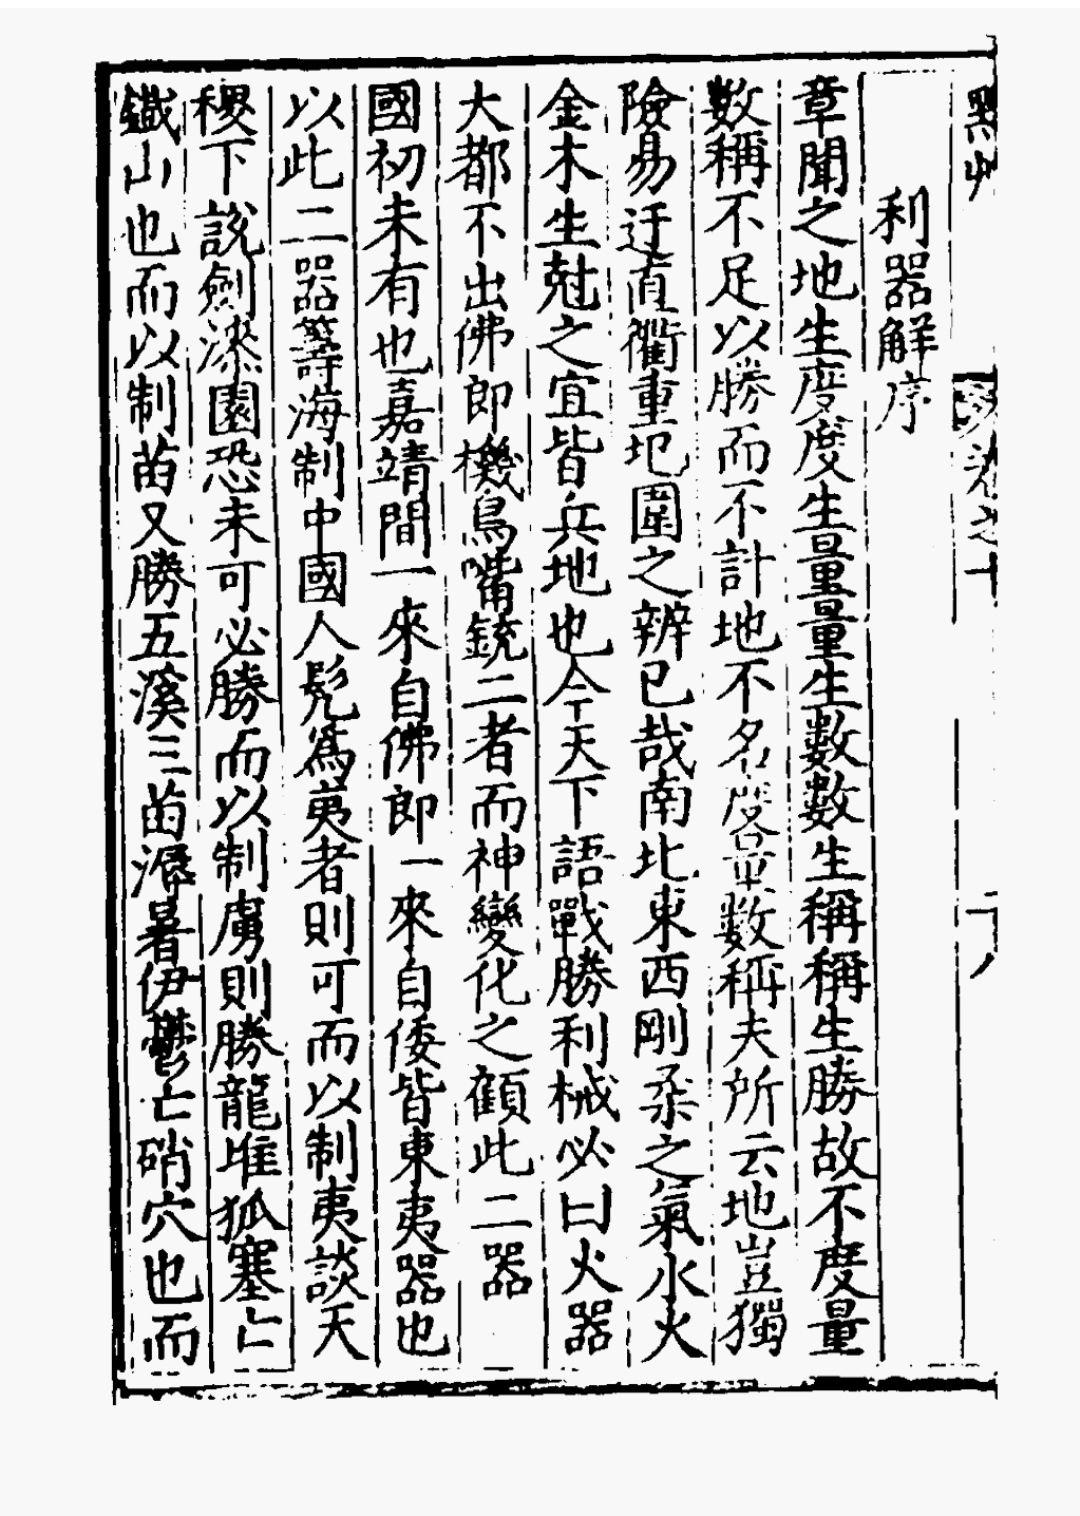 利器解序
章聞之地生度度生量量生數數生稱稱生勝故不度量
數稱不足以勝而不計地不名度量數稱夫所云地豈獨
險易迂直衢重圯圍之辨已哉南北東西剛柔之氣水火
金木生尅之宜皆兵地也今天下語戰勝利械必曰火器
大都不出佛郎機鳥嘴銃二者而神變化之顧此二器
國初未有也嘉靖間一來自佛郎一來自倭皆東夷器也
以此二器籌海制中國人髠爲夷者則可而以制夷談天
稷下說劍漆園恐未可必勝而以制虜則勝龍堆狐塞亡
鐵山也而以制苗又勝五溪三苗溽暑伊鬱亡硝穴也而